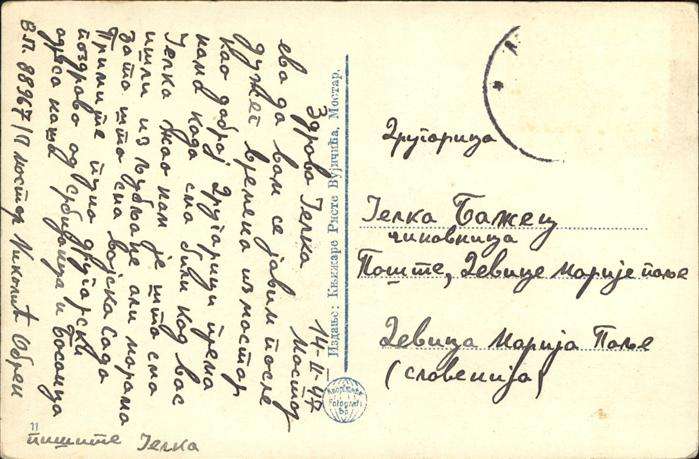 14-II-47
Мостар
Здраво Јелка
ева да вам се јавим после
дужег времена из мостар
као доброј другарици према
нама када сма били код вас
Јелка жао нам је што сма
ишли из љубљане али морамо
зато што сма војска сада
Примите пуно другарски
поздрава од србијанца и босанца
адреса наша
В.П. 88967/П мостар Никонић Обрен
пишите Јелка
Издање: Књижаре Ристе Вујичића, Мостар.
Fotograf
11
Другарица
Јелка Бажец
чиновница
Поште, Девице Марије поље
Девица Марија Поље
(словенија)